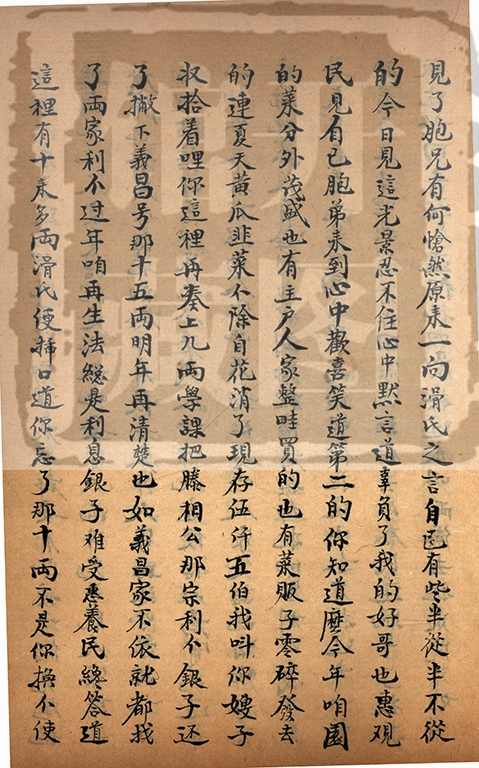 見了胞兄有何愴然原来一向滑氏之言自己有些半從半不從
的今日見這光景忍不住心中黙言道辜負了我的好哥也惠观
民見自己胞弟来到心中歡喜笑道第二的你知道麽今年咱園
的菜分外茂盛也有主户人家整畦買的也有菜販子零碎發去
的連夏天黄瓜韮菜仆除自花消了現存伍仟五伯我呌你嫂子
収拾着哩你這裡再奏上九兩學課把滕相公那宗利仆銀子还
了撇下義昌号那十五兩明年再清楚也如義昌家不依就都找
了両家利仆过年咱再生法総是利息銀子难受惠養民纔答道
這裡有十来多両滑氏便插口道你忘了那十両不是你換仆使